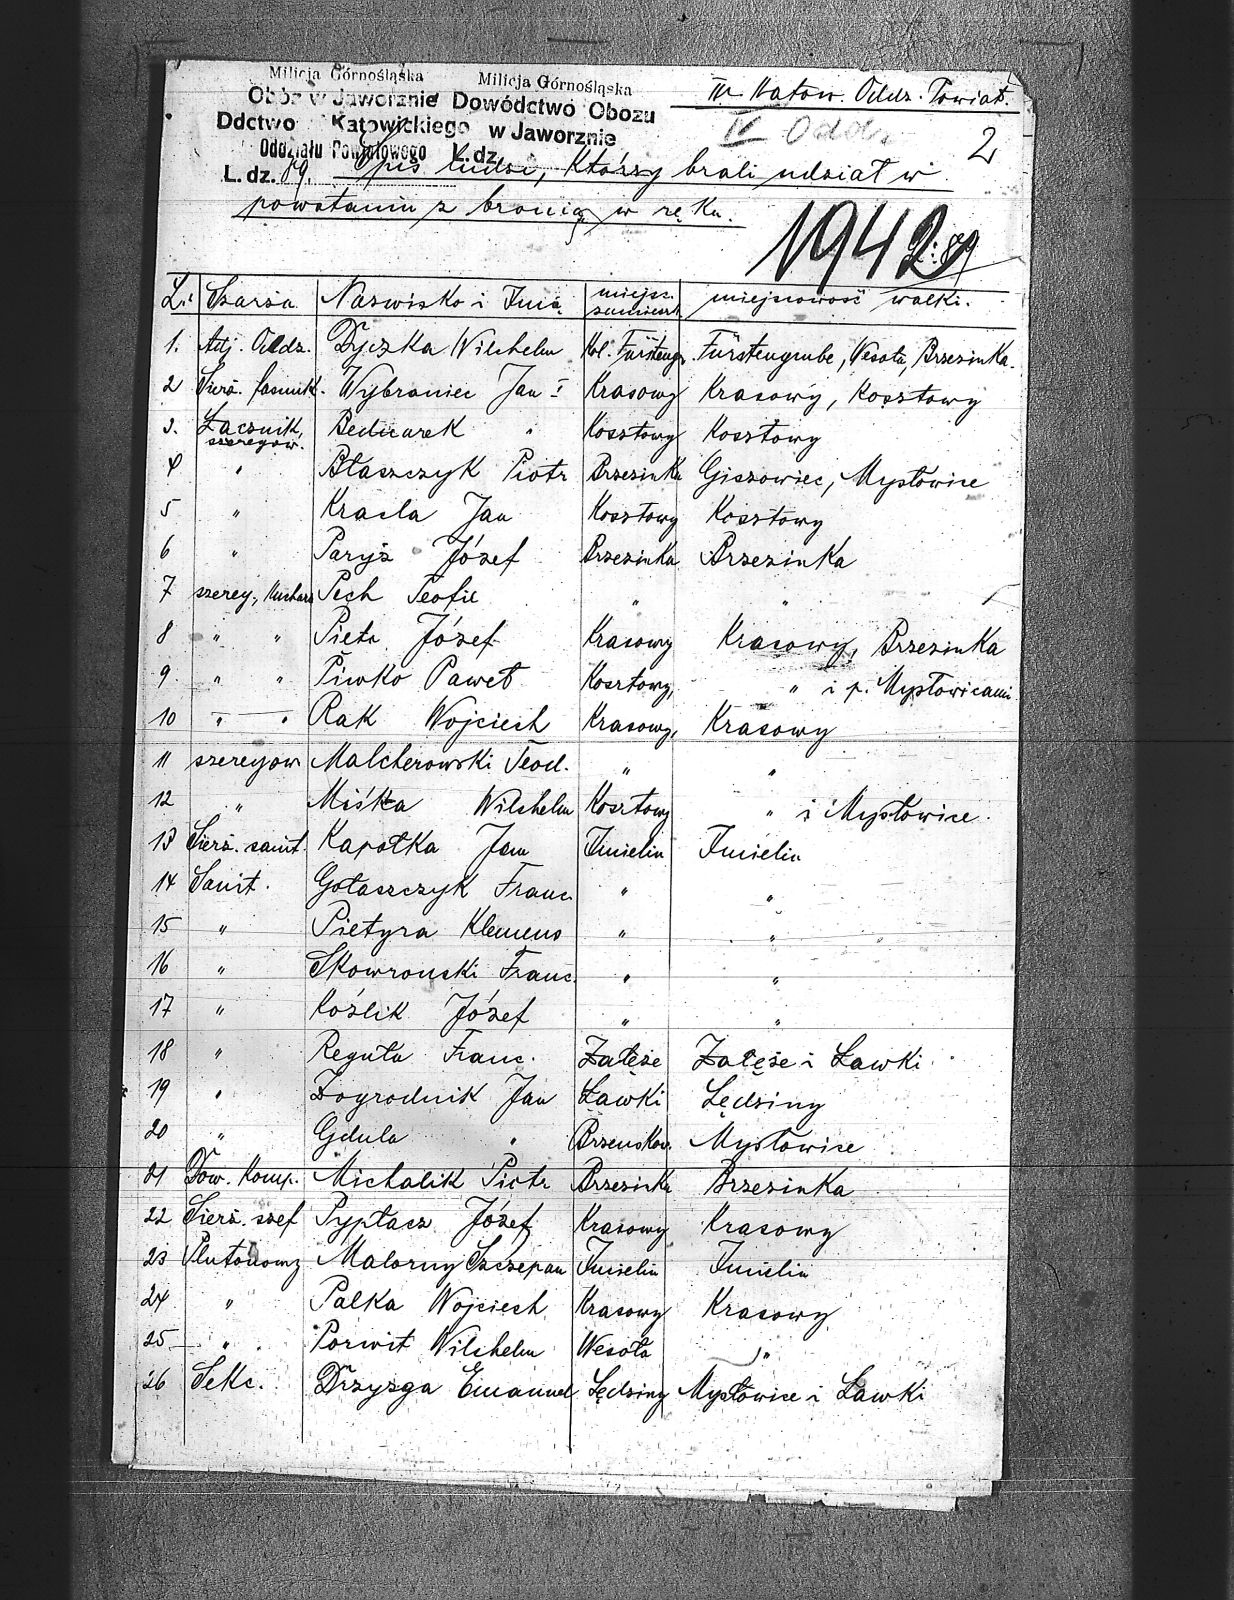 Milicja Górnośląska Milicja Górnośląska
Obóz w Jaworznie Dowództwo Obozu
Ddctwo Katowickiego w Jaworznie
Oddziału Powiatowego L. dz.
L. dz. 89.
III. Katow. Oddz. Powiat.
IV Oddz.
2
Spis ludzi, Którzy brali udział w
powstaniu z bronią w ręku.
1942
L: 89
L: Szarża Nazwisko i Imię miejsc. zamieszk. miejscowość walki.
1. Adj. Oddz. Dyczka Wilchelm Kol. Fürstengr. Fürstengrube, Wesoła, Brzezinka.
2 Sierż. kasunk. Wybraniec Jan I Krasowy Krasowy, Kosztowy
3. Łącznik, szeregow. Bednarek " Kosztowy Kosztowy
4 " Błaszczyk Piotr Brzezinka Giszowiec, Mysłowice
5 " Kracla Jan Kosztowy Kosztowy
6 " Paryż Józef Brzezinka Brzezinka
7 szereg., Kucharz Pech Teofil " "
8 " " Pieta Józef Krasowy Krasowy, Brzezinka
9. " " Piwko Paweł Kosztowy, " i p. Mysłowicami
10 " " Rak Wojciech Krasowy, Krasowy
11 szeregow Malcherowski Teod. " "
12 " Miśka Wilchelm Kosztowy " i Mysłowice.
13 Sierż. sanit. Kapołka Jan Imielin Imielin
14 Sanit. Gołaszczyk Franc. " "
15 " Pietyra Klemens " "
16 " Skowronski Franc. " "
17 " Koźlik Józef " "
18 " Reguła Franc. Załęże Załęże i Ławki
19 " Zogrodnik Jan Ławki Lędziny
20 " Gdula " Brzenskow. Mysłowice
21 Dow. Komp. Michalik Piotr Brzezinka Brzezinka
22 Sierż. szef Pypłacz Józef Krasowy Krasowy
23 Plutonowy Malorny Szczepan Imielin Imielin
24 " Palka Wojciech Krasowy Krasowy
25 " Porwit Wilchelm Wesoła "
26 Sekc. Drzyzga Emanuel Lędziny Mysłowice i Ławki